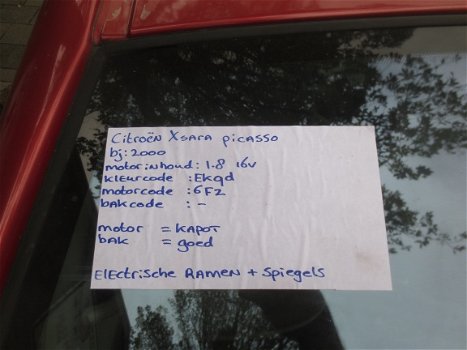 Citroën Xsara picasso
bj: 2000
motorinhoud: 1.8 16v
kleurcode : EKQd
motorcode : 6FZ
bakcode : -
motor = kapot
bak = goed
Electrische Ramen + spiegels